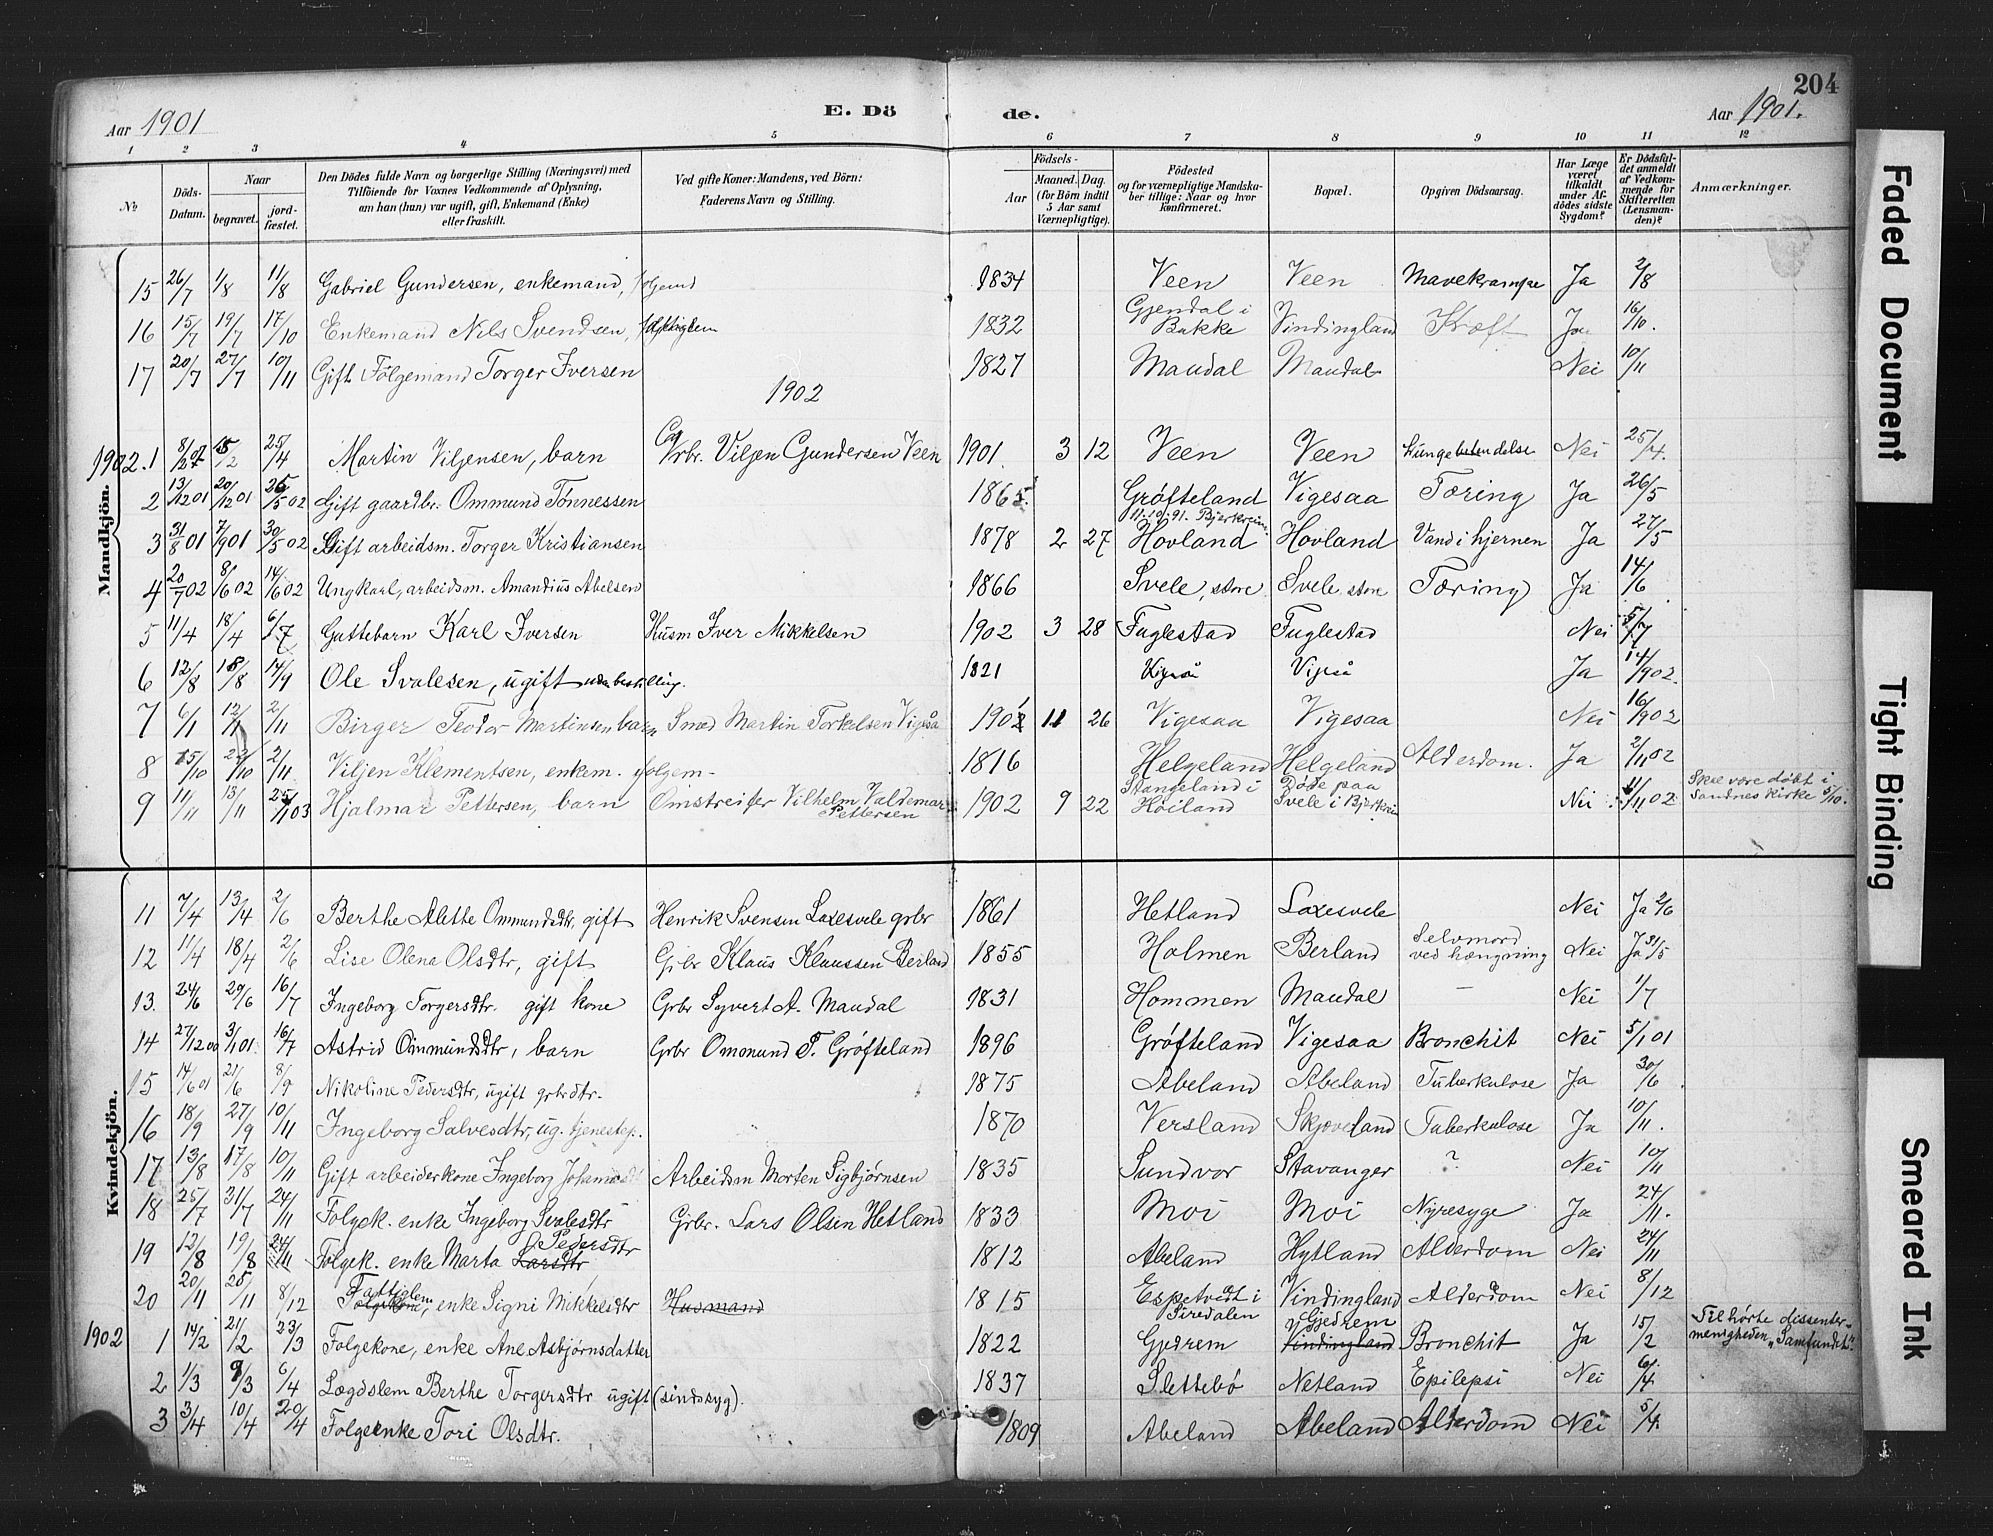 204
Aar 1901 E. Dö de. Aar 1901.
1 2 3 4 5 6 7 8 9 10 11 12
№ Døds-Datum. Naar begravet. jord-fæstet. Den Dödes fulde Navn og borgerlige Stilling (Næringsvei) med Tilföiende for Voxnes Vedkommende af Oplysning, om han (hun) var ugift, gift, Enkemand (Enke) eller fraskilt. Ved gifte Koner: Mandens, ved Börn: Faderens Navn og Stilling. Födsels- Aar Maaned. Dag. (for Börn indtil 5 Aar samt Værnepligtige). Födested og for værnepligtige Mandska-ber tillige: Naar og hvor konfirmeret. Bopæl. Opgiven Dödsaarsag. Har Læge været tilkaldt under Af-dödes sidste Sygdom? Er Dödsfal-det anmeldt af Vedkom-mende for Skifteretten (Lensman-den)? Anmærkninger.
Mandkjön.
15 26/7 1/8 11/8 Gabriel Gundersen, enkemand, folgemd 1834 Veen Veen Mavekrampe Ja 2/8
16 15/7 19/7 17/10 Enkemand Nils Svendsen, 1832 Gjendal i Bakke Vindingland Kræft Ja 16/10.
17 20/7 27/7 10/11 Gift Folgemand Torger Iversen 1827 Maudal Maudal Nei 10/11
1902
1902. 1 25/4 Martin Viljensen, barn Grbr. Viljen Gundersen Veen 1901. 3 12 Veen Veen Lungebetendelse Nei 25/4.
2 13/12 01 20/12 01 26/5 02 Gift gaardbr. Ommund Tønnessen 1865. Grøfteland Vigesaa Tæring Ja 26/5
3 31/8 01 7/9 01 30/5 02 Gift arbeidsm. Torger Kristiansen 1878 2 27 11-10-91. Bjerkreim. Hovland Hovland Vand i hjernen Ja 27/5
4 20/7 02 8/6 02 14/6 02 Ungkarl, arbeidsm. Amandius Abelsen 1866 Svele, store Svele, store Tæring Ja 14/6
5 11/4 18/4 6/7 Guttebarn Karl Iversen Husm Iver Mikkelsen 1902 3 28 Fuglestad Fuglestad Nei 5/7
6 12/8 18/8 14/9 Ole Svalesen, ugift uden bestilling. 1821 Vigeså Vigeså Ja 14/9 02.
7 6/1 12/1 2/11 Birger Teodor Martinsen barn Smed Martin Torkelsen Vigeså 1901 11 26 Vigesaa Vigesaa Nei 16/9 02
8 15/10 22/10 2/11 Viljen Klementsen, enkem. folgem- 1816 Helgeland Helgeland Alderdom. Ja 2/11 02
9 11/11 13/11 25/1 03 Hjalmar Pettersen, barn Omstreifer Vilhelm Valdemar Pettersen 1902 9 22 Stangeland i Høiland Døde paa Svele i Bjerkreim Nei 11/11 02 Skal være døbt i Sandnes kirke 5/10.
Kvindekjön.
11 7/4 13/4 2/6 Berthe Alette Ommundsdtr, gift Henrik Svensen Laxesvele grbr 1861 Hetland Laxesvele Nei Ja 2/6
12 11/4 18/4 2/6 Lise Olena Olsdtr, gift Grbr Klaus Klaussen Berland 1855 Holmen Berland Selvmord ved hængning Nei Ja 31/5
13. 24/6 29/6 16/7 Ingeborg Torgersdtr. gift kone Grbr Syvert A. Maudal 1831 Hommen Maudal – Nei 1/7
14 27/12 00 3/1 01. 16/7 Astrid Ommundsdtr, barn Grbr Ommund T. Grøfteland 1896 Grøfteland Vigesaa Bronchit Nei 5/1 01
15 14/6 01 21/6 8/9 Nikoline Pedersdtr, ugift grbrdtr. 1875 Abeland Abeland Tuberkulose Ja 30/6
16 18/9 27/9 10/11 Ingeborg Salvesdtr, ug. tjenestep. 1870 Versland Skjæveland Tuberkulose Ja 10/11.
17 13/8 17/8 10/11 Gift arbeiderkone Ingeborg Arbeidsm Morten Sigbjørnsen 1835 Sundvor Stavanger ? Nei 10/11
18 25/7 31/7 24/11 Folgek. enke Ingeborg Svalesdtr Grbr. Lars Olsen Hetland 1833 Moi Moi Nyresyge Ja 24/11.
19 12/8 19/8 24/11 Folgek. enke Marta Larsdtr Pedersdtr 1812 Abeland Hytland Alderdom Nei 24/11
20 20/11 25/11 8/12 Folgekone, Fattiglem enke Signi Mikkelsdtr Husmand 1815 Espetvedt i Siredalen Vindingland Alderdom Nei 8/12
1902 1 14/2 21/2 23/3 Folgekone, enke Ane Asbjørnsdatter 1822 Gjedrem Vindingland Gjedrem Bronchit Ja 15/2 Tilhørte dissenter-menigheden „Samfundet".
2 1/3 9/3 6/4 Lægdslem Berthe Torgersdtr ugift (sindssyg). 1837 Slettebø Netland Epilepsi Nei 6/4
3 3/4 10/4 20/4 Folgeenke Tori Olsdtr. 1809 Abeland Abeland Alderdom Nei 5/4.
Faded Document
Tight Binding
Smeared Ink